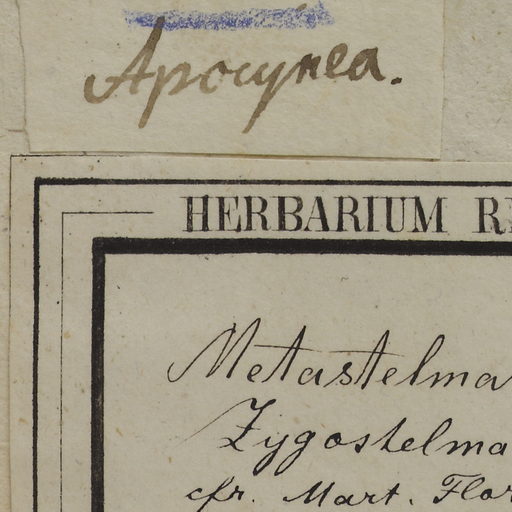 Apocynea.
HERBARIUM
Metastelma
Zygostelma
cfr. Mart. Flor